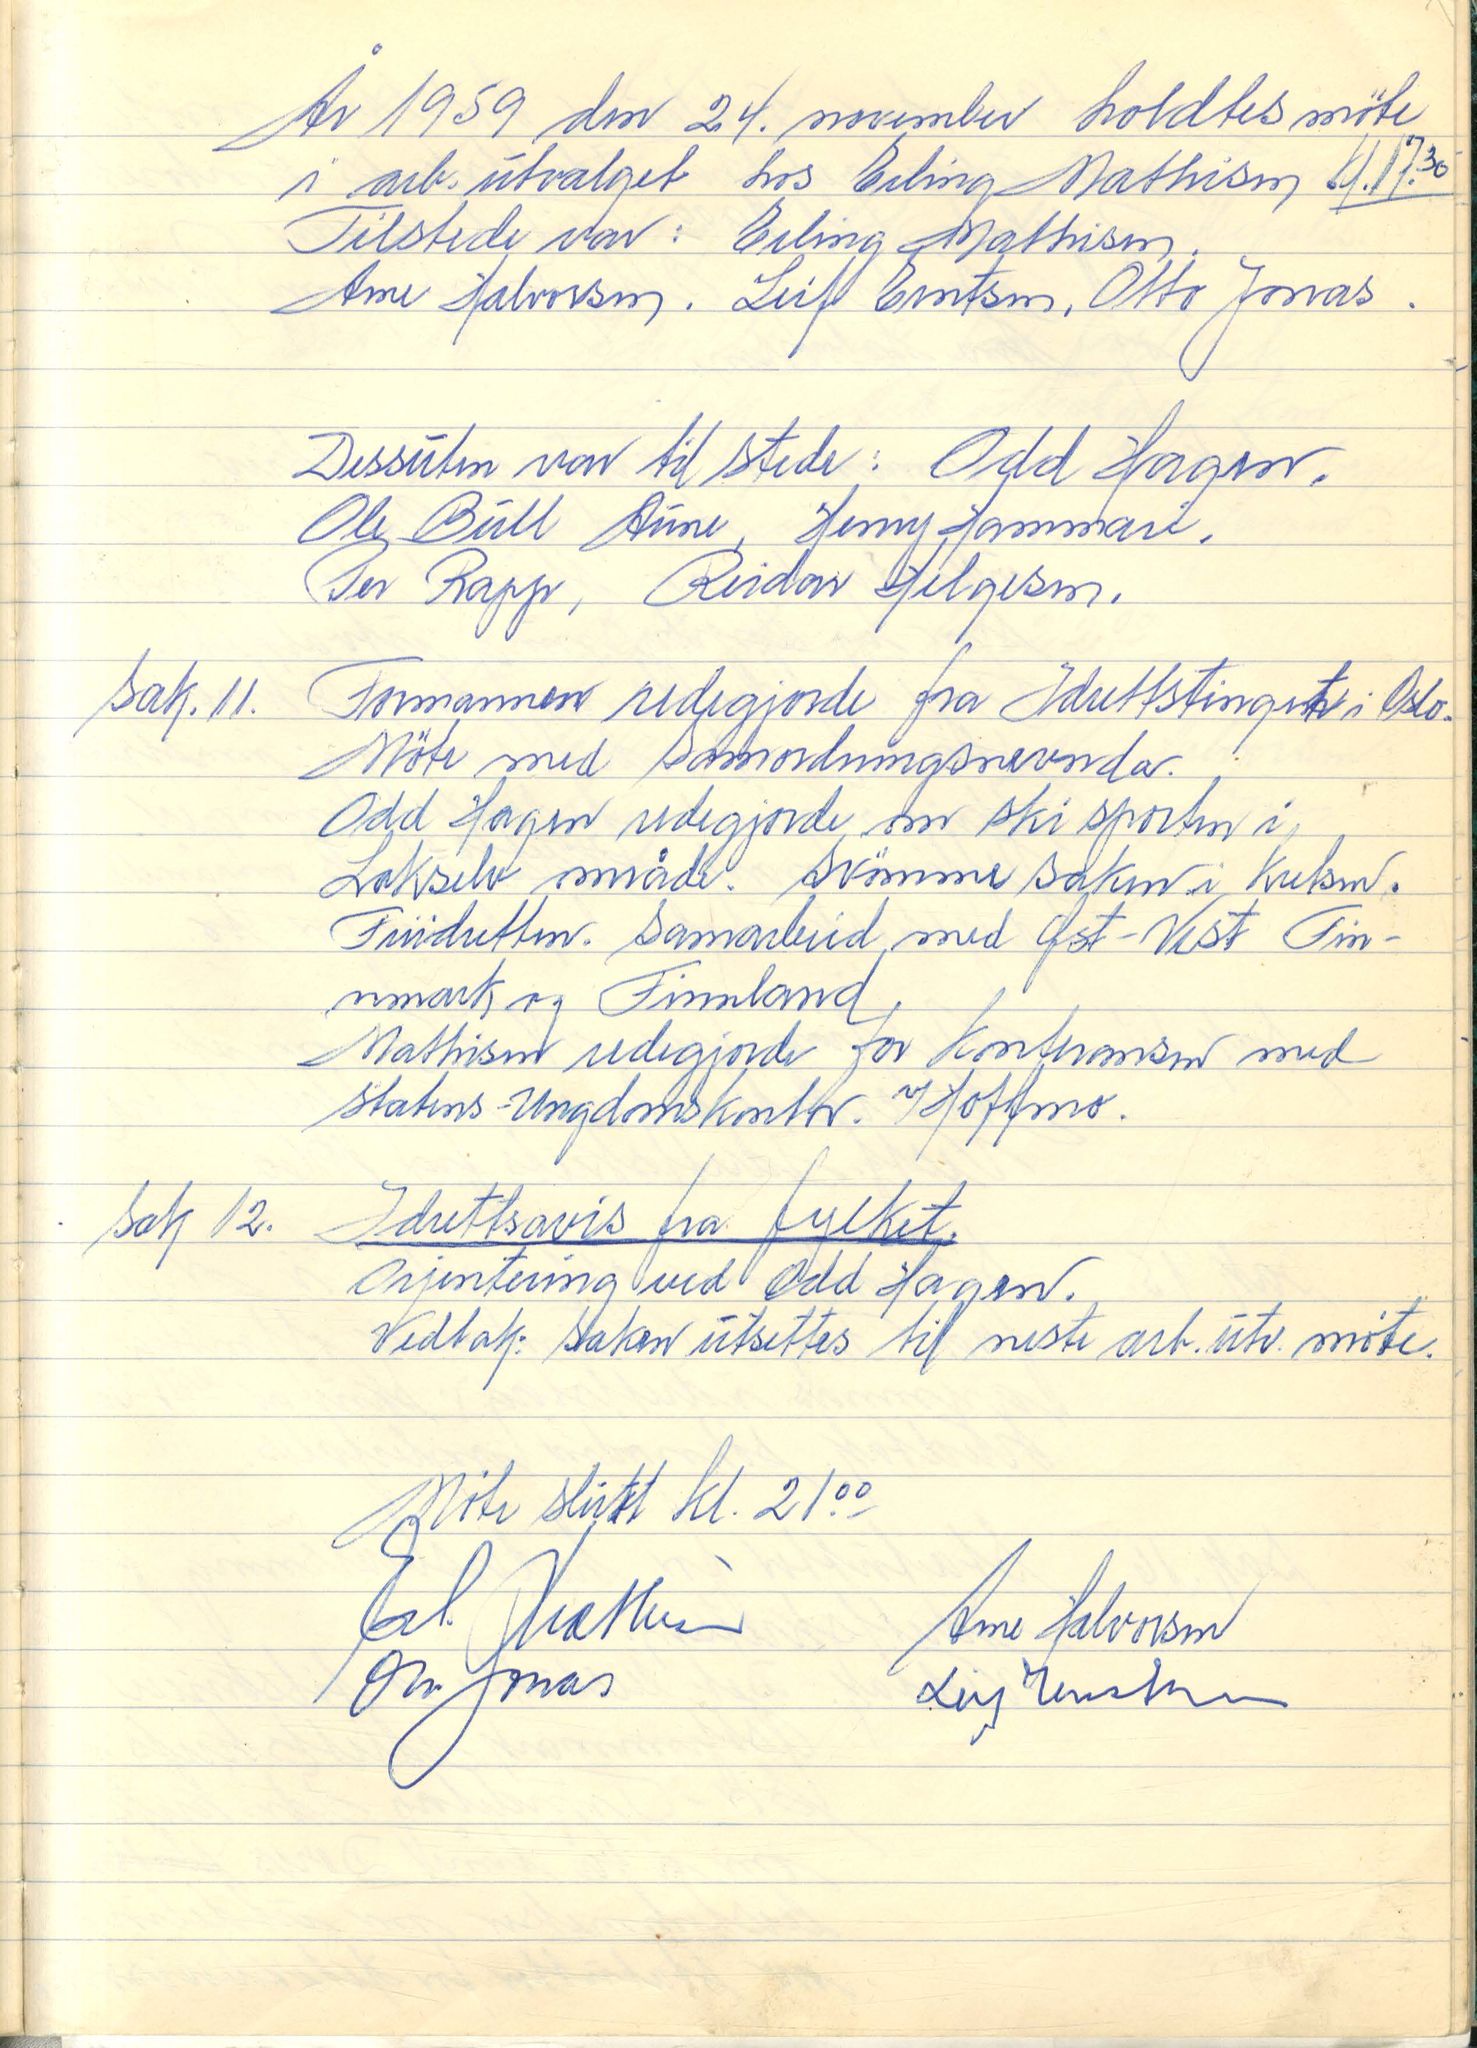 År 1959 den 24. november holdtes möte
i arb. utvalget hos Erling Mathisen kl. 17.30
Tilstede var: Erling Mathisen.
Arne Halvorsen. Leif Erntsen, Otto Jonas.
Dessuten var til stede: Odd Hagen.
Ole Bull Aune, Henry Hammari.
Per Rapp, Reidar Helgesen.
Sak. 11. Formannen redegjorde fra Idrettstinget i Oslo.
Möte med Samordningsnevnda.
Odd Hagen redegjorde om ski sporten i
Lakselv område. Svömme saken i kretsen.
Friidretten. Samarbeid med Øst-Vest Fin-
nmark og Finnland.
Mathisen redegjorde for konferansen med
Statens-Ungdomskontor. v/Hoffmo.
Sak 12. Idrettsavis fra fylket.
Orjentering ved Odd Hagen.
Vedtak: Saken utsettes til neste arb. utv. möte.
Möte slutt kl. 21.00
Erl. Mathisen Arne Halvorsen
Otto Jonas Leif